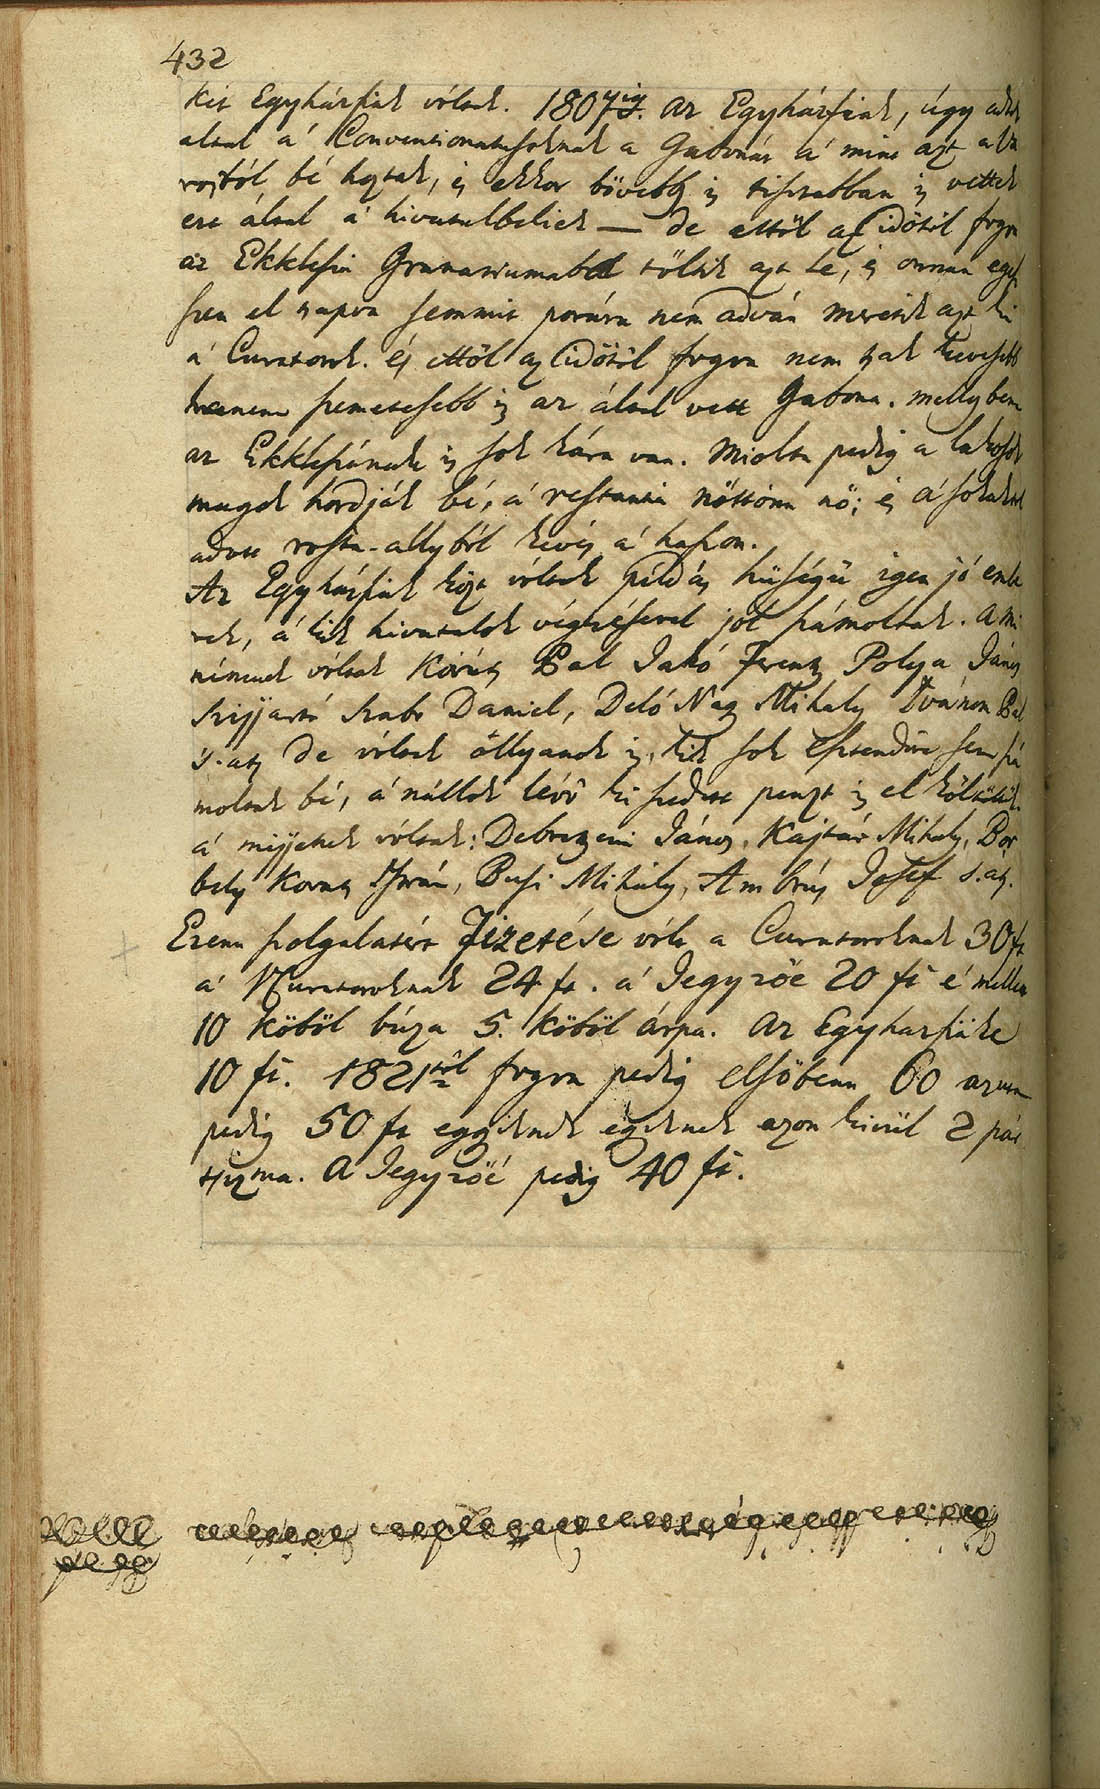 432
két Egyházfiak vóltak. 1807ig. az Egyházfiak, úgy adták
által a' Conventionatusoknak a Gabonát a' mint azt a Vá
rostól bé hozták, és ekkor bővebb is tisztább is vettek
ezt által a' hivatalbeliek — de ettől az időtől fogva
az Ekklesia Granariumabol töltik azt le, és onnan egé
szen el tsapva semmit porára nem adván meretik azt ki
a' Curatorok. és ettől az időtől fogva nem tsak kevesebb
hanem szemetesebb is az által vett Gabona. mellyben
az Ekklesiának is sok kára van. Miolta pedig a lakosok
magok hordják bé, a' restantia nőttön nő; és a' soknak
adott rosta-allyból kevés a' haszon.
Az Egyházfiak közt vóltak példás hűségű igen jó embe
rek, a' kik hivatalok végzésével jól számoltak. a mi
némüek vóltak Kováts Pal Jakó Ferentz Polya János
Szijjartó Szabo Daniel, Deló Nagy Mihaly Iváncza Pal
s. at. de vóltak óllyanok is, kik sok esztendőre sem szá
moltak bé, a' nállok lévő ki szedett penzt is el költötték
a' mijjenek vóltak: Debretzeni János, Kajtár Mihaly, Bor
bely Kovats István, Busi Mihály, Ambrús Josef s. at.
Ezenn szolgalatért fizetése vólt a Curatoroknak 30 ft
a' Curatoroknak 24 ft. a' Jegyzőé 20 ft é mellett
10 köböl búza 5. köböl árpa. az Egyházfiaké
10 ft. 1821től fogva pedig elsőbenn 60 azután
pedig 50 ft eggyiknek egyiknek azon kivül 2 pár
tsizma. A Jegyzőé pedig 40 ft.